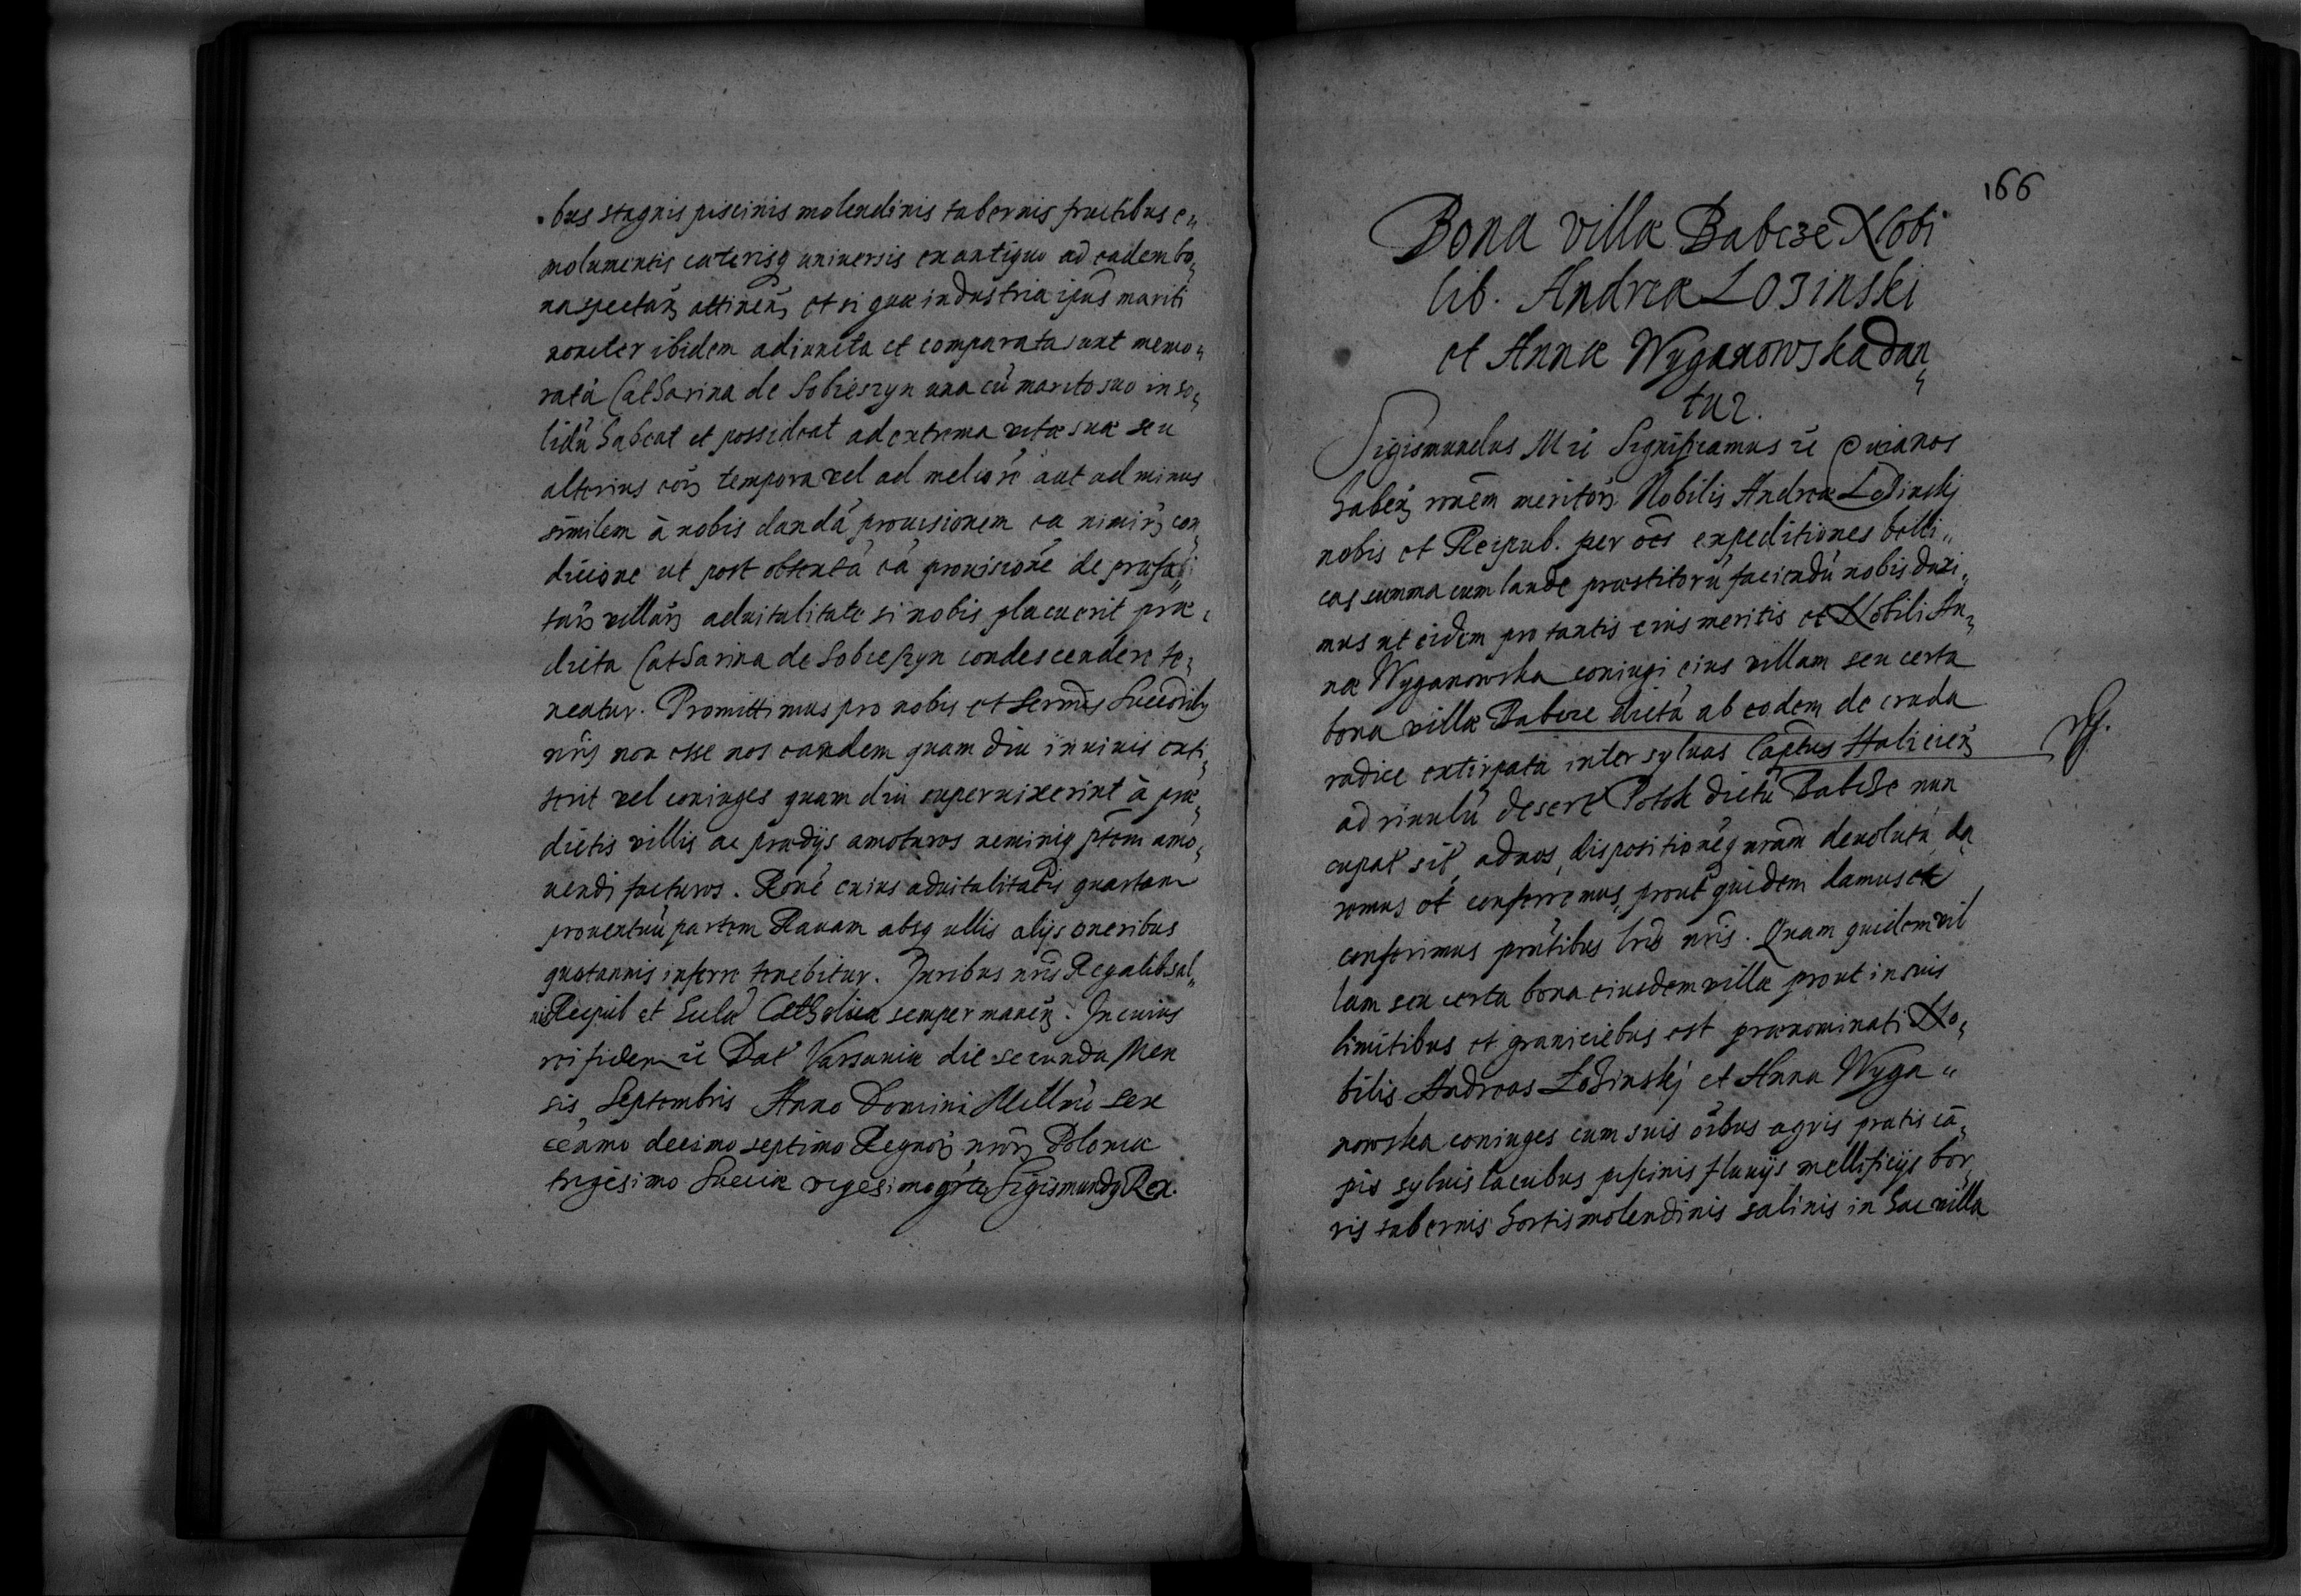 bus stagnis piscinis molendinis tabernis fructibus e„
molumentis cæterisq universis ex antiquo ad eadem bo„
na spectan̄ attinen̄ et si quæ industria ipsius mariti
noviter ibidem adiuncta et comparata sunt memo„
rata Catharina de Sobieszyn una cū marito suo in so„
lidū habeat et possideat ad extrema vitæ suæ seu
alterius eor̄ tempora vel ad meliorē aut ad minus
similem à nobis dandā provisionem ea nimir̄ con„
ditione ut post obtentā eā provisionē de præfa„
tar̄ villar̄ advitalitate si nobis placuerit præ„
dicta Catharina de Sobieszyn condescendere te„
neatur. Promittimus pro nobis et Sermīs Succorib9
nr̄is non esse nos eandem quam diu in vivis exti„
terit vel coniuges quam diu supervixerint à præ„
dictis villis ac prædijs amoturos neminiq ptām amo„
vendi facturos. Ronē cuius advitalitatis quartam
proventuū partem Ravam absq ullis alijs oneribus
quotannis inferre tenebitur. Juribus nr̄is Regalib sal„
vis Reipub et Eccla Catholicæ semper manen̄. In cuius
rei fidem ec̄ Dat Varsaviæ die secunda Men
sis Septembris Anno Domini Millmo sex
cen̄mo decimo septimo Regnor̄ nror̄ Poloniæ
trigesimo Sueciæ vigesimo qrto Sigismundq Rex.
166
Bona villæ Babcze Nobi
lib. Andreæ Łozinski
et Annæ Wyganowska dan„
tur.
Sigismundus III ec̄ Significamus ec̄ Quia nos
haben̄ ronēm meritor̄ Nobilis Andreæ Łozinskj
nobis et Reipub. per oēs expeditiones belli„
cas summa cum laude præstitorū faciendū nobis duxi„
mus ut eidem pro tantis eius meritis et Nobili An„
næ Wyganowska coniugi eius villam seu certa
bona villæ Babcze dicta ab eodem de cruda
radice extirpata inter sylvas Captus Halicien̄
ad rivulū desert Potok dictū Babcze nun
cupat sit, ad nos dispositionēq nram devoluta da
remus et conferremus, prout quidem damus et
conferimus prntibus lris nris. Quam quidem vil
lam seu certa bona eiusdem villæ prout in suis
limitibus et graniciebus est prænominati No„
bilis Andreas Łozinskj et Anna Wyga„
nowska coniuges cum suis oībus agris pratis cā„
pis sylvis lacubus piscinis fluvijs mellificijs bor„
ris tabernis hortis molendinis salinis in hac villa